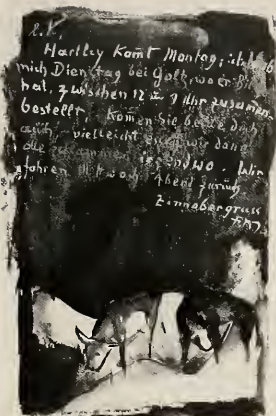 L. K.
Hartley kommt Montag; ich hab
mich Dienstag bei Goltz, wo er
hat, zwischen 12 u. 1 Uhr zusammen-
bestellt. Komen Sie bitte doch
auch, vielleicht wir dann
alle zusammen irgendwo. Wir
fahren Mittwoch Abend zurück